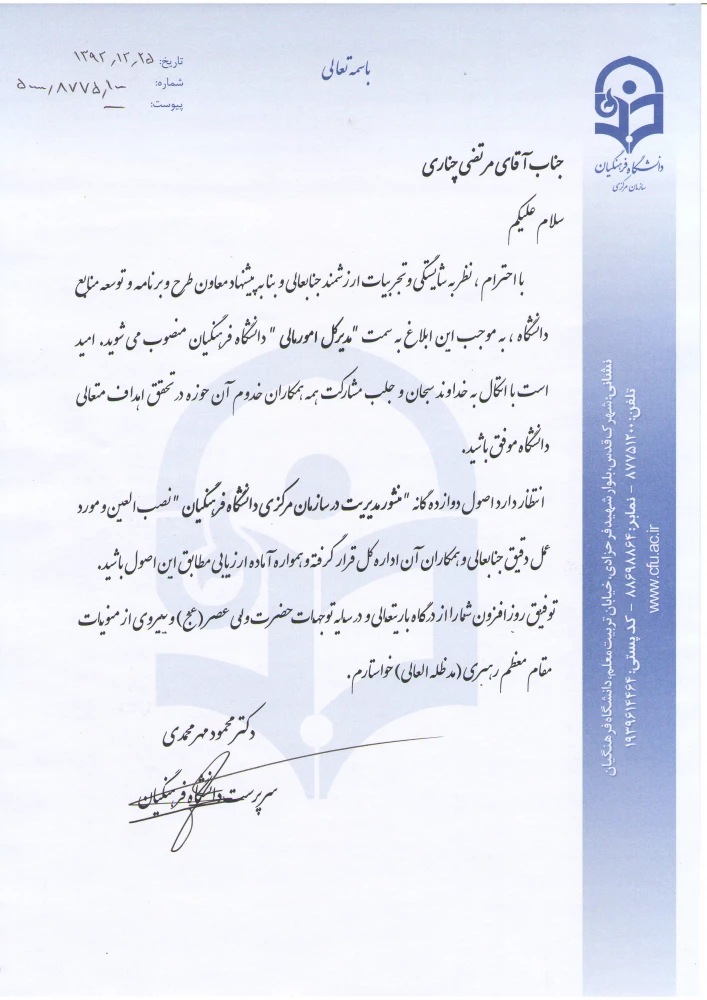 باسمه تعالی
تاریخ: ۱۳۹۲٫۱۲٫۲۵
شماره:
پیوست: —
دانشگاه فرهنگیان
سازمان مرکزی
جناب آقای مرتضی چناری
سلام علیکم
با احترام ، نظر به شایستگی و تجربیات ارزشمند جنابعالی و بنا به پیشنهاد معاون طرح و برنامه و توسعه منابع
دانشگاه ، به موجب این ابلاغ به سمت "مدیرکل امورمالی " دانشگاه فرهنگیان منصوب می شوید. امید
است با اتکال به خداوند سبحان و جلب مشارکت همه همکاران خدوم آن حوزه در تحقق اهداف متعالی
دانشگاه موفق باشید.
انتظار دارد اصول دوازده گانه "منشور مدیریت در سازمان مرکزی دانشگاه فرهنگیان "نصب العین و مورد
عمل دقیق جنابعالی و همکاران آن اداره کل قرار گرفته و همواره آماده ارزیابی مطابق این اصول باشید.
توفیق روز افزون شما را از درگاه باریتعالی و در سایه توجهات حضرت ولی عصر(عج) و پیروی از منویات
مقام معظم رهبری (مد ظله العالی) خواستارم.
دکتر محمود مهرمحمدی
سرپرست دانشگاه فرهنگیان
نشانی: شهرک قدس، بلوار شهید فرحزادی، خیابان تربیت معلم، دانشگاه فرهنگیان
تلفن: ۸۷۷۵۱۲۰۰ – نمابر: ۸۸۶۹۸۸۶۴ – کد پستی: ۱۹۳۹۶۱۴۴۶۴
www.cfu.ac.ir